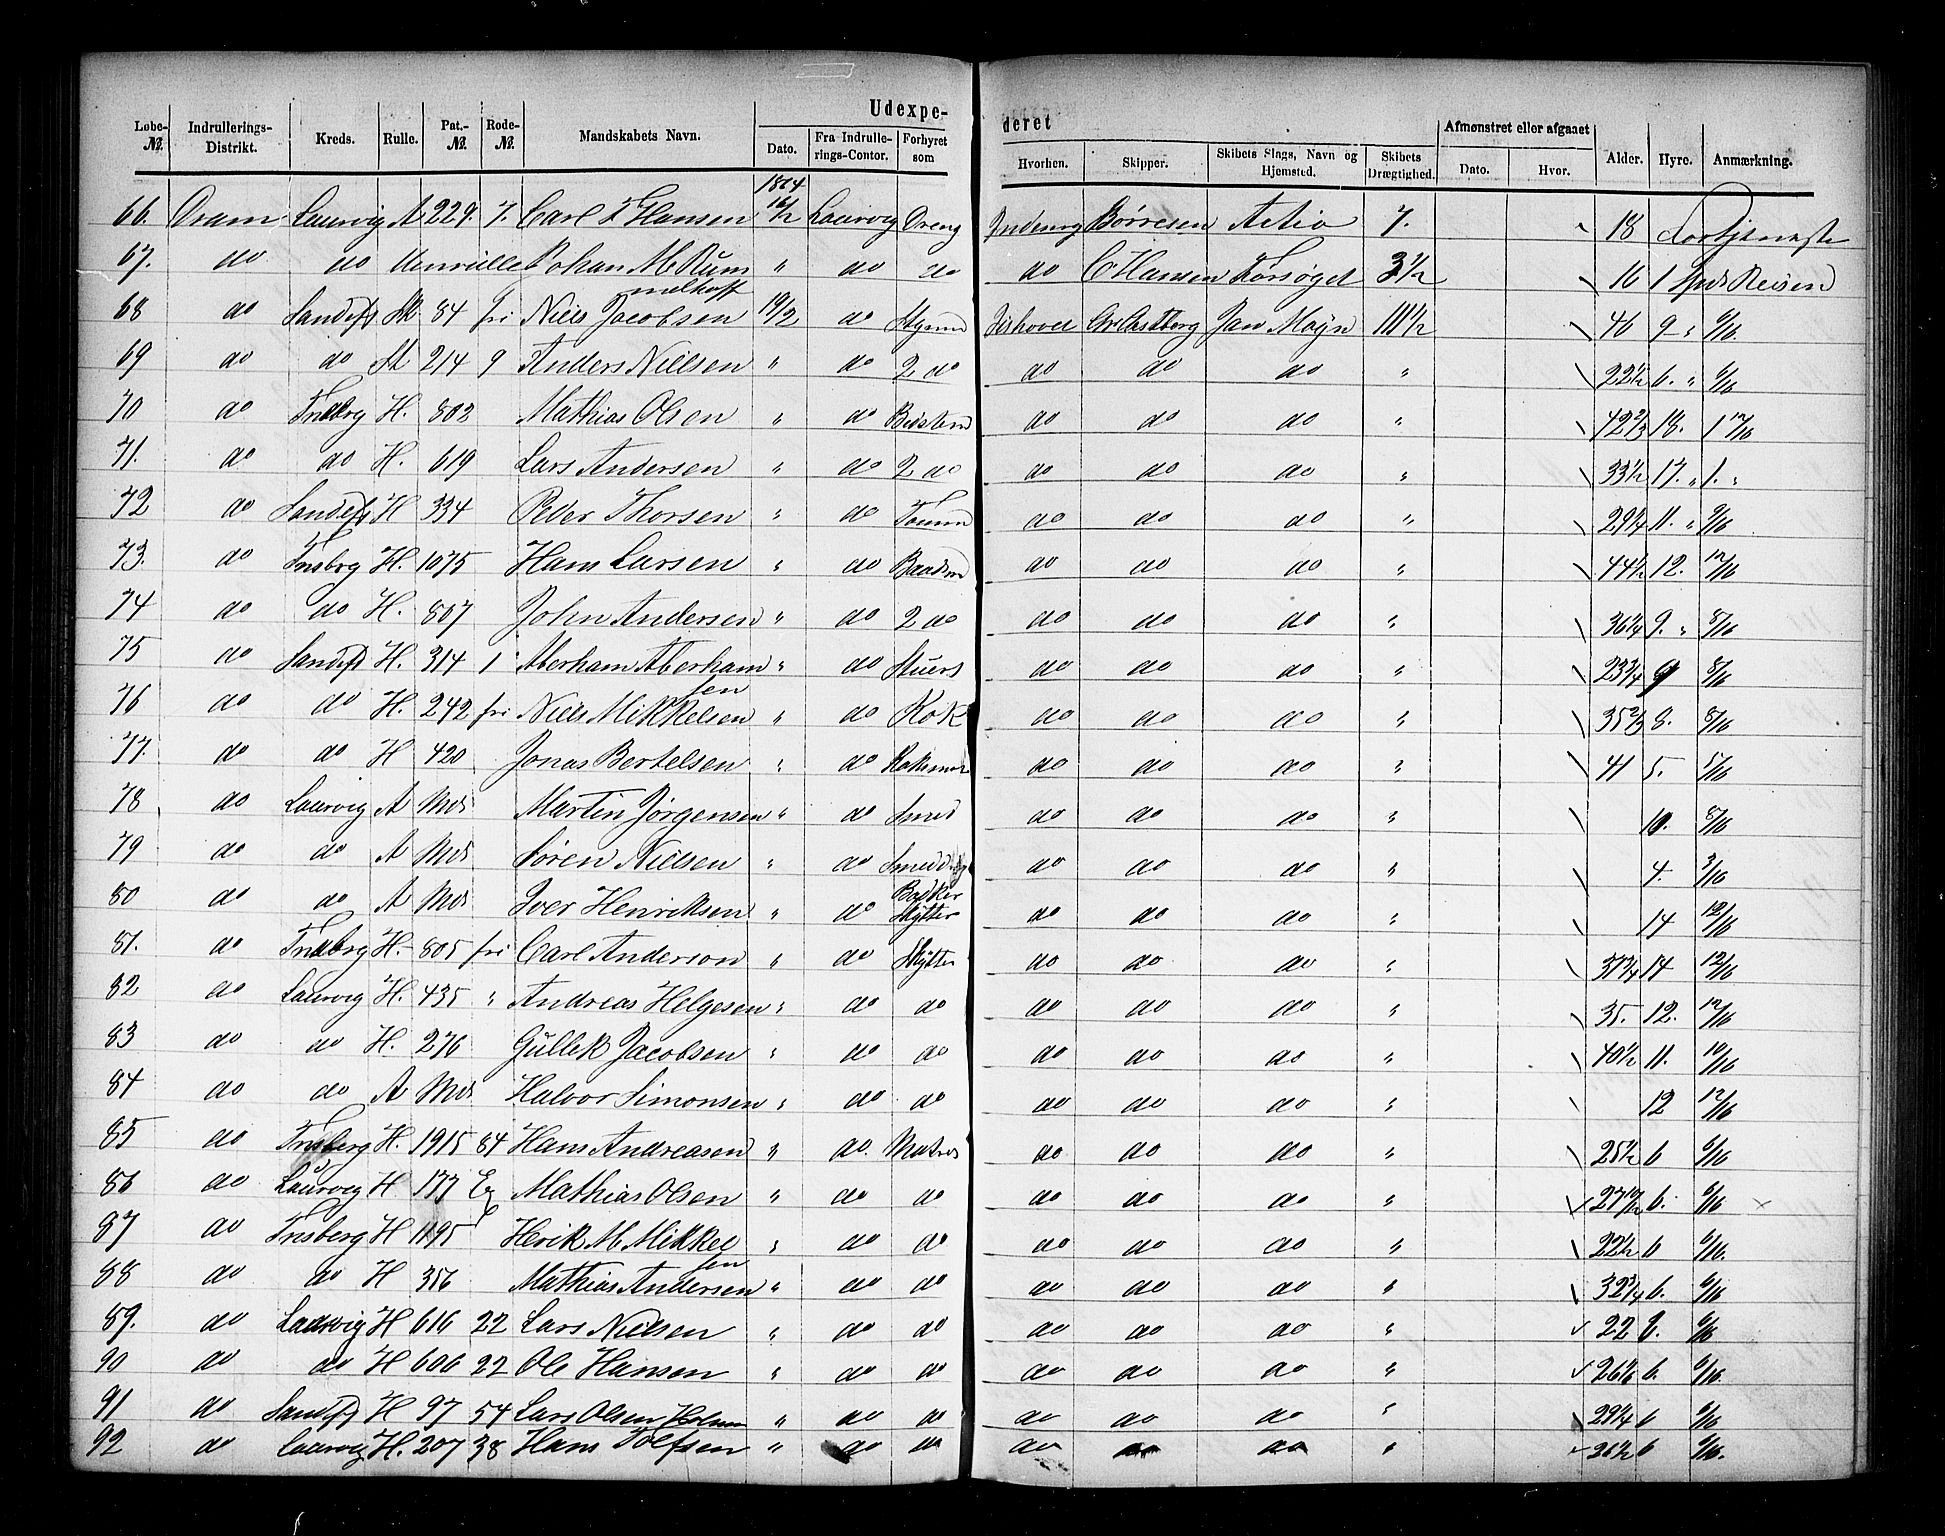 Udexpe-
deret
Løbe-No. Indrullerings-Distrikt. Kreds. Rulle. Pat.-No. Rode-No. Mandskabets Navn. Dato. Fra Indrulle-rings-Contor. Forhyret som Hvorhen. Skipper. Skibets Slags, Navn og Hjemsted. Skibets Drægtighed. Afmønstret eller afgaaet Dato. Hvor. Alder. Hyre. Anmærkning.
66. Dram Laurvig A 229. 7. Carl F Hansen 1864 16/2 Laurvig Dreng Børresen Activ 7. 18
67. do do Uenrulle Johan M Rummelhoff " do do do C Hansen Forsøget 3 1/2 16 1 Spd Reisen
68 do Sandefj 84 fri Niels Jacobsen 19/2 do Styrmd Jan Mayn 111 1/2 46 9 " 6/16.
69 do do 214 9 Anders Nielsen " do 2 do do do do " 22 1/2 6. " 6/16
70 do Tnsbrg H. 802 Mathias Olsen " do Bedstmd do do do " 42 2/3 18. 1 12/16
71. do do H. 619 Lars Andersen " do 2 do do do do " 33 1/2 17. " 1. "
72 do Sandefj H 334 Peder Thorsen " do Tømmd do do do " 29 1/4 11. " 9/16
73. do Tnsbrg H. 1075 Hans Larsen " do Baadsmd do do do " 44 1/2 12. 12/16
74 do do H. 807 John Andersen " do 2 do do do do " 36 1/4 9. " 8/16
75 do Sandefj H. 314 1 Aberham Aberhamsen " do Stuert do do do " 23 3/4 9 8/16
76 do do H. 242 fri Niels Mikkelsen " do Kok do do do " 35 2/3 8. 8/16
77. do do H 420 Jonas Bertelsen " do Koksmat do do do " 41 5. 5/16
78 do Laurvig A Mds Martin Jørgensen " do Smed do do do " 10. 8/16
79 do do A Mds Søren Nielsen " do Smeddrg do do do " 4. 3/16
80 do do A Mds Iver Henriksen " do Bødker Skytter do do do " 14 12/16
81. do Tnsbrg H. 805 fri Carl Anderson " do Skytter do do do " 37 3/4 14 12/16
82 do Laurvig H. 435 " Andreas Helgesen " do do do do do " 35. 12. 12/16
83 do do H. 276 Gullek Jacobsen " do do do do do " 40 1/2 11. 10/16
84 do do A Mds Halvor Simonsen " do do do do do " 12 12/16
85 do Tnsberg H. 1915 84 Hans Andreasen " do. Matros do do do " 25 1/2 6 6/16
86 do Laurvig H 177 Mathias Olsen " do do do do do " 27 6. 6/16
87 do Tnsberg H 1195 Henrik M Mikkelsen " do do do do do " 22 1/2 6 6/16.
88 do do H 356 Mathias Andersen " do do do do do " 32 3/4 6. 6/16
89. do Laurvig H 616 22 Lars Nielsen " do do do do do " 22 6. 6/16
90 do do H 606 22 Ole Hansen " do do do do do " 26 6. 6/16.
91 do Sandefj H 97 54 Lars Olsen Holmen " do do do do do " 29 1/4 6 6/16
92 do Laurvig H. 207 38 Hans Tolfsen " do do do do do " 26 1/2 6 6/16.